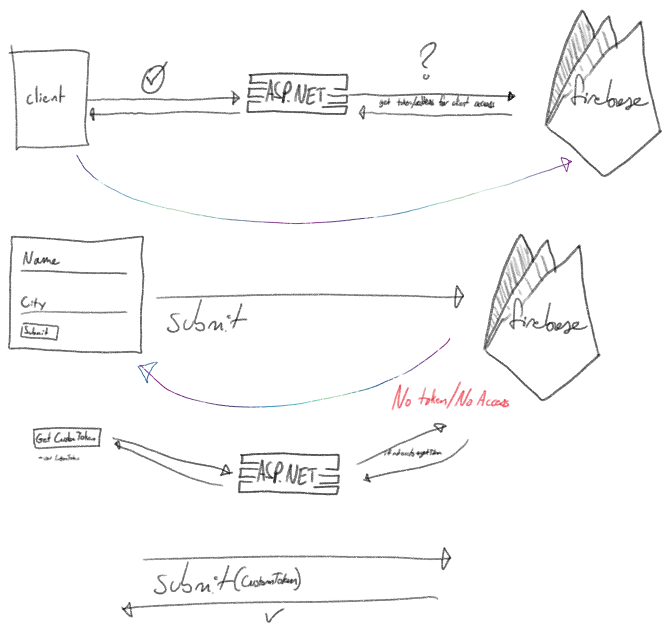 client
ASP.NET
?
get token/address for client access
firebase
Name
City
Submit
Submit
firebase
No token/No Access
Get CustomToken
ASP.NET
Submit(CustomToken)